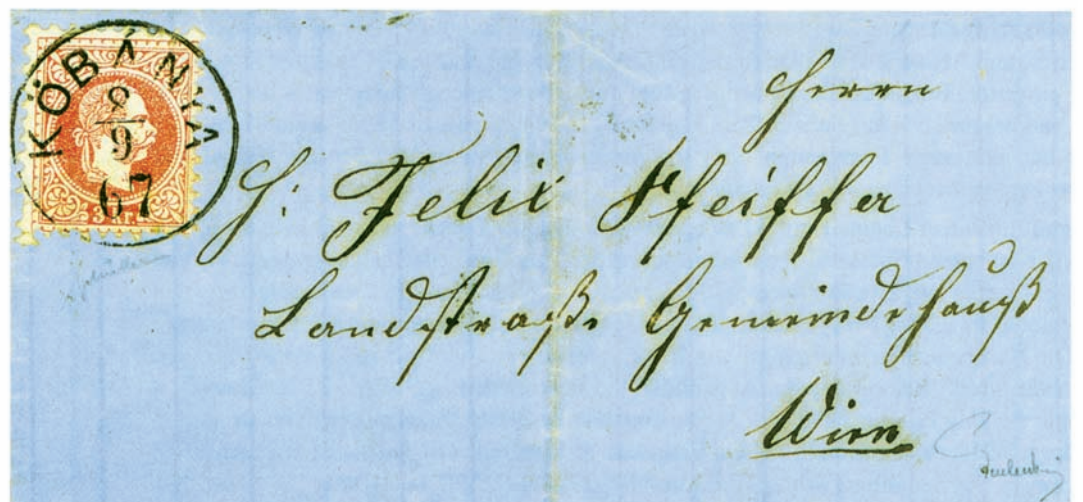 KÖBÁNYA
2/9
67
3 KR.
Herrn
H: Felix Pfeiffer
Landstraße Gemeindehauß
Wien